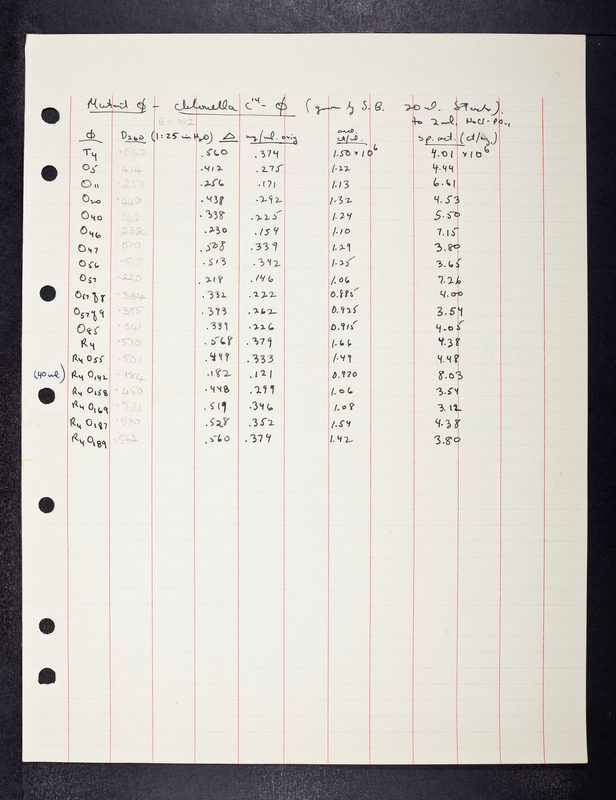 Mutant φ - chlorella C¹⁴- φ (grown by S.B. 20 ml. Stocks).
B = .002 to 2 ml. NaCl-PO₄
φ D₂₆₀ (1:25 in H₂O) Δ mg/ml. orig ct/ml. sp. act. (ct/mg)
T₄ .562 .560 .374 1.50 x 10⁶ 4.01 x 10⁶
O₅ .414 .412 .275 1.22 4.44
O₁₁ .258 .256 .171 1.13 6.61
O₂₀ .440 .438 .292 1.32 4.53
O₄₀ .340 .338 .225 1.24 5.50
O₄₆ .232 .230 .154 1.10 7.15
O₄₇ .510 .508 .339 1.29 3.80
O₅₆ .515 .513 .342 1.25 3.65
O₅₇ .220 .218 .146 1.06 7.26
O₅₇q₈ .334 .332 .222 0.885 4.00
O₅₇q₉ .395 .393 .262 0.925 3.54
O₈₅ .341 .339 .226 0.915 4.05
R₄ .570 .568 .379 1.66 4.38
R₄O₅₅ .501 .499 .333 1.49 4.48
(40 ml) R₄O₁₄₂ .184 .182 .121 0.970 8.03
R₄O₁₅₈ .450 .448 .299 1.06 3.54
R₄O₁₆₉ .521 .519 .346 1.08 3.12
R₄O₁₈₇ .530 .528 .352 1.54 4.38
R₄O₁₈₉ .562 .560 .374 1.42 3.80